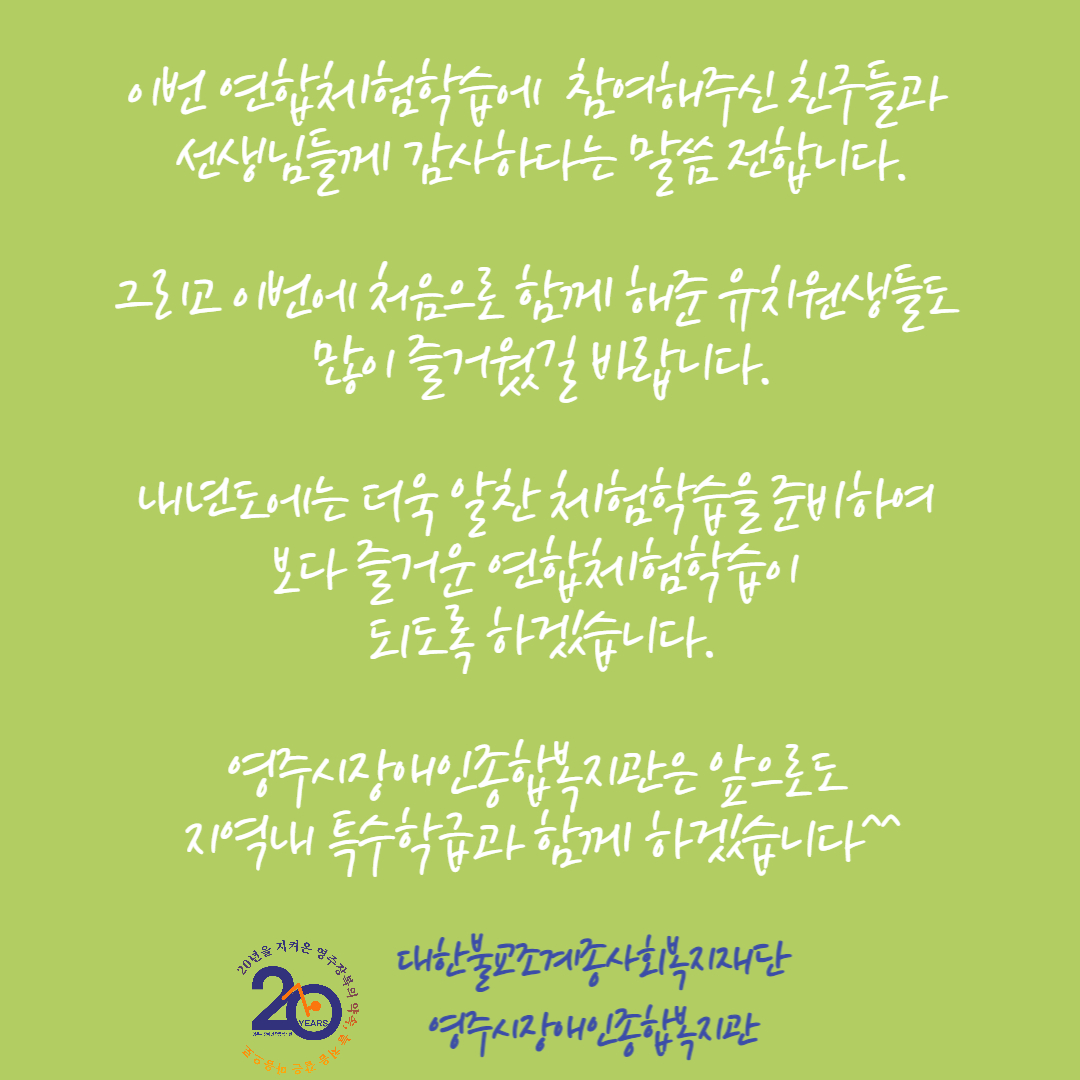 이번 연합체험학습에 참여해주신 친구들과
선생님들께 감사하다는 말씀 전합니다.
그리고 이번에 처음으로 함께 해준 유치원생들도
많이 즐거웠길 바랍니다.
내년도에는 더욱 알찬 체험학습을 준비하여
보다 즐거운 연합체험학습이
되도록 하겠습니다.
영주시장애인종합복지관은 앞으로도
지역내 특수학급과 함께 하겠습니다^^
20년을 지켜온 영주장복의 약속,
20
YEARS
대한불교조계종사회복지재단
영주시장애인종합복지관